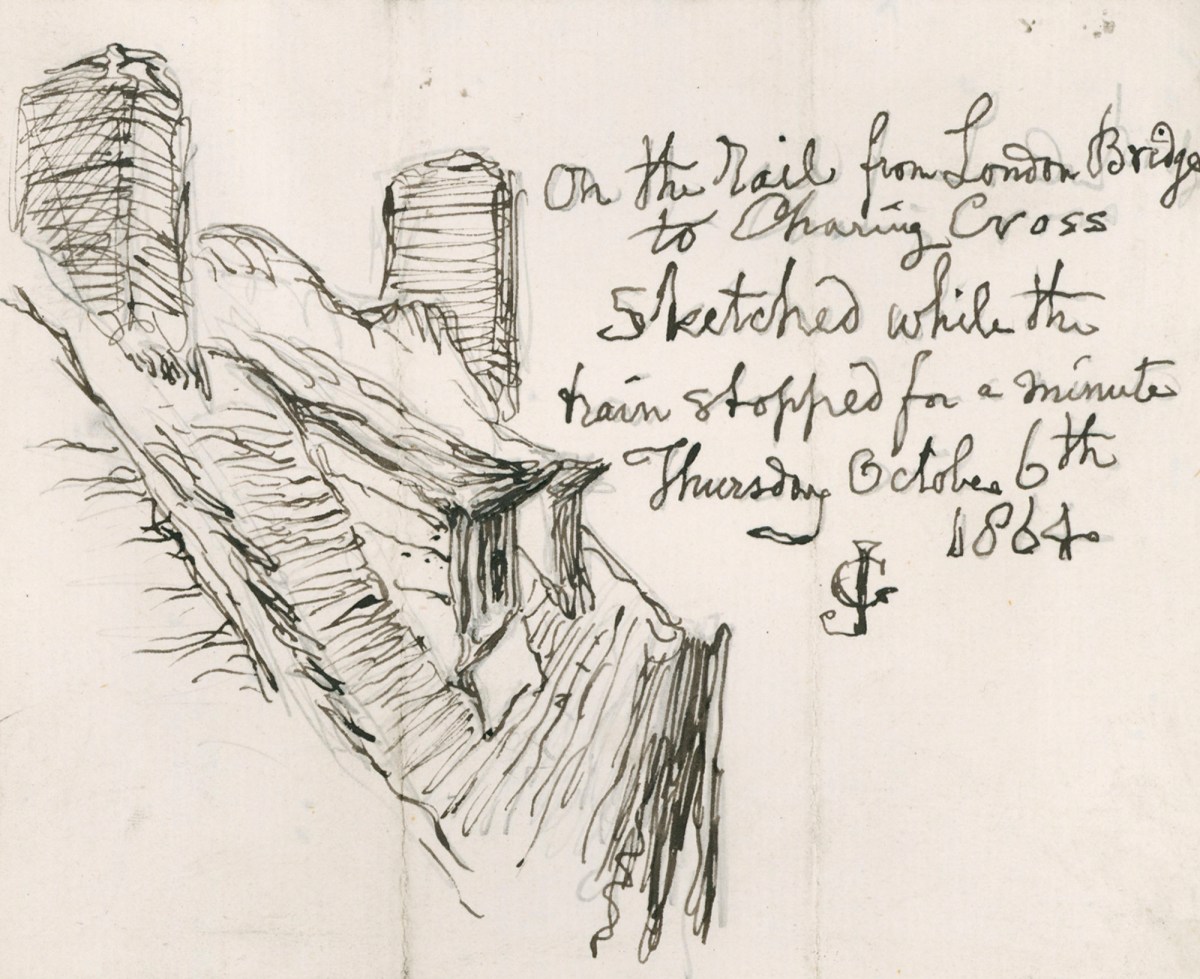 On the Rail from London Bridge
to Charing Cross
Sketched while the
train stopped for a minute
Thursday October 6th
1864